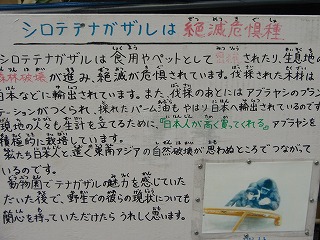 シロテテナガザルは絶滅危惧種
シロテテナガザルは食用やペットとして密猟されたり、生息地の
森林破壊が進み、絶滅が危惧されています。伐採された木材は
日本などに輸出されています。また、伐採のあとにはアブラヤシのプラン
テーションがつくられ、採れたパーム油もやはり日本へ輸出されているのです。
現地の人々も生計を立てるために、"日本人が高く買ってくれる。"アブラヤシを
積極的に栽培しています。
私たち日本人と遠く東南アジアの自然破壊が思わぬところでつながって
いるのです。
動物園でテナガザルの魅力を感じていた
だいた後で、野生での彼らの現状についても
関心を持っていただけたらうれしく思います。